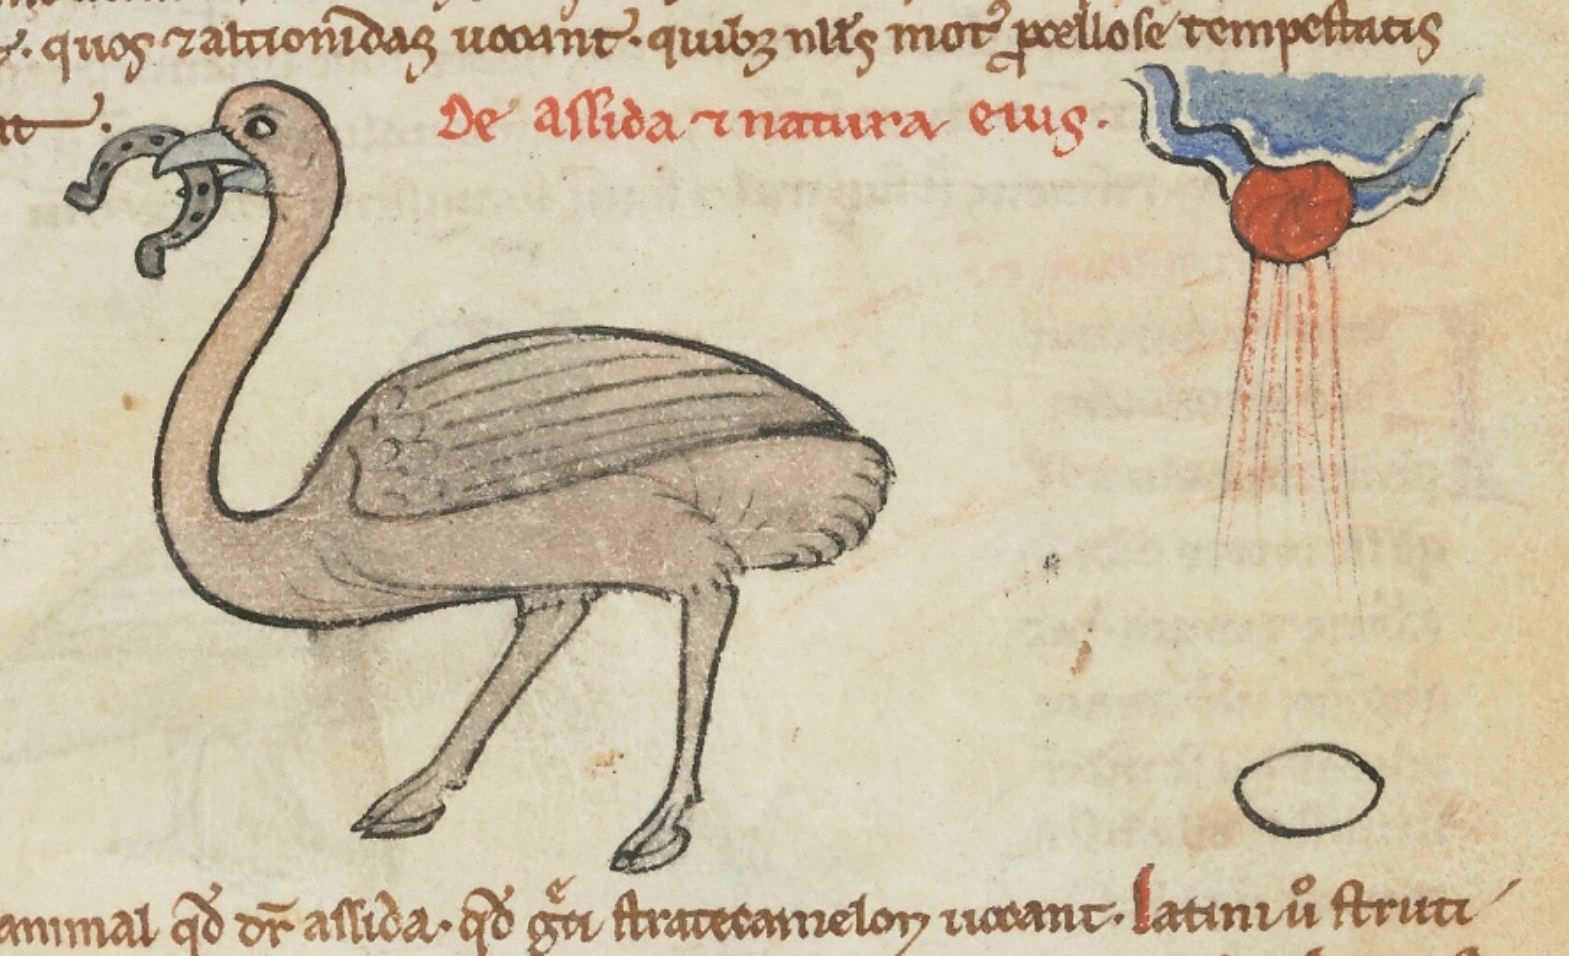 quos ⁊ altionidas uocant. quibȝ nłłs mot᷒ ꝓcellose tempestatis
at.
De assida ⁊ natura eius.
animal qđ dr̄ assida. qđ gͤci stratecamelon uocant. Latini ů struti